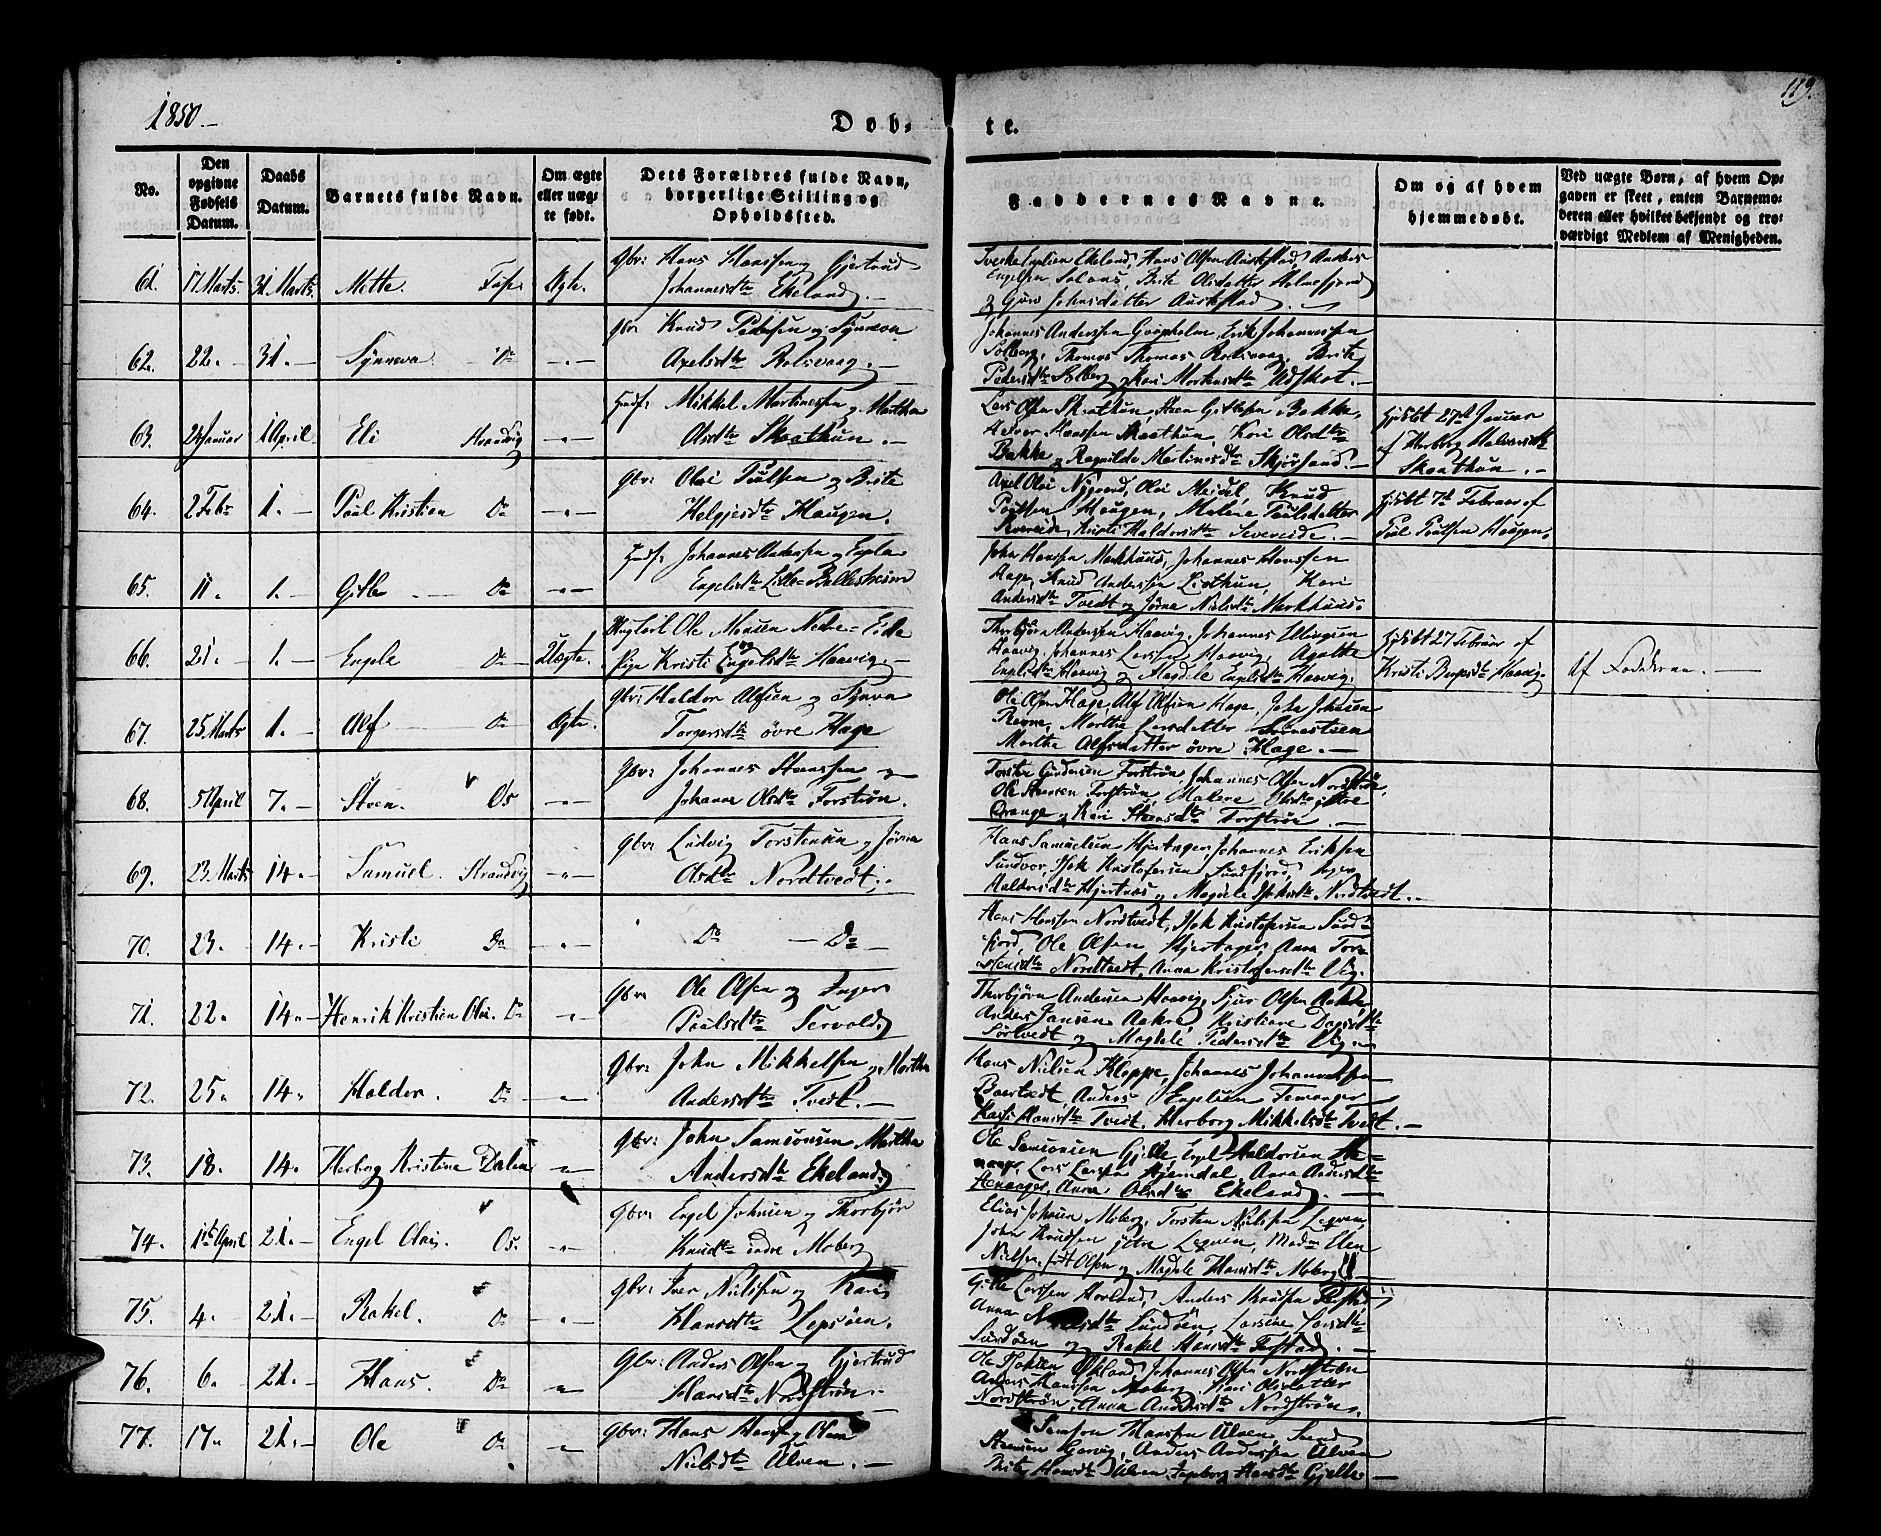 1850.
119.
Døb-
te.
No.
Den opgivne Fødsels Datum.
Daabs Datum.
Barnets fulde Navn.
Om ægte eller uægte født.
Dets Forældres fulde Navn, borgerlige Stilling og Opholdssted.
Faddernes Navne.
Om og af hvem hjemmedøbt.
Ved uægte Børn, af hvem Opgaven er skeet, enten Barnemoderen eller hvilket bekjendt og troværdigt Medlem af Menigheden.
61. 17 Marts. 31 Marts. Mette. Ægte.
Gbr: Hans Hanssen og Gjertrud
Johannesdtr Ekeland.
Hans Olsen
Brite Olsdatter
62. 22. 31. Synneva Do
Gbr Knud Pedersen og Synneva
Axelsdtr Rolsvaag.
Johannes Anderssen Erik Johannessen
Solberg, Thomas Thomas Rolsvaag, Brite
Pedersdtr Solberg og Kari Mortensdtr Udskot.
63. 24 Januar 1 April Eli Strandvig
Husf: Mikkel Martinessen og Martha
Olsdtr Skaathun.
Lars Olsen Skaathun, Bakke,
Hanssen Skaathun, Kari Olsdtr
Bakke og Ragnilde Martinesdtr
Hjdøbt 27de Januar
af Herborg Halvorsdtr
Skaathun.
64. 2 Febr 1. Poul Kristian Do
Gbr: Olai Poulsen og Brite
Helgjesdtr Haugen.
Axel Olai Nygaard, Olai Meidel, Knud
Poulsen Haugen, Malene Poulsdatter
Kristi Haldorsdtr
Hjdøbt 7de Februar af
Poul Poulsen Haugen.
65. 11. 1. Gitle Do
Husf: Johannes Andersen og Engla
Engelsdtr Lille-Bollesheim
John Hanssen Markhuus, Johannes Hanssen
Hage, Knud Andersen Liothun, Kari
Andersdtr Tvedt og Jørna Nielsdtr Markhuus.
66. 21. 1. Engela Do Uægte.
Ungkarl Ole Monsen Nedre-Eide
og
Pige Kristi Engelsdtr Haavig.
Thorbjørn Andersen Haavig, Johannes Ellingsen
Haavig, Johannes Larssen Haavig, Agathe
Engelsdtr Haavig og Magdele Engelsdtr Haavig.
Hjdøbt 27 Februar af
Kristi Haavig.
Af Faderen.
67. 25 Marts 1. Alf Ægte.
Gbr: Haldor Alfsen og Synva
Torgersdtr øvre Hage
Ole Olsen Hage, Alf Alfsen Hage, John Johnsen
Martha Larsdatter
Martha Alfsdatter øvre Hage.
68. 5 April 7. Steen. Os
Gbr: Johannes Steenssen og
Johanna Olsdtr Forstrøn.
Forstrøn, Johannes Olsen Nordstrøn,
Ole Steensen Forstrøn, Malene Olsdtr ytre
Drange og Kari Steensdtr Forstrøn.
69. 23 Marts 14. Samuel. Strandvig
Gbr: Ludvig Torstensen og Jørina
Olsdtr Nordtvedt.
Hans Samuelsen Hjertager, Johannes Eriksen
Sundvor, Kristofersen Sundfjord, Inger
Haldorsdtr Hjertnæs og Magdele Nordtvedt.
70. 23. 14. Kristi Do
Do Do
Hans Hanssen Nordtvedt, Kristofersen Sund-
fjord, Ole Olsen, Hjertager, Anna Tor-
stensdtr Nordtvedt, Anna Kristofersdtr Vig.
71. 22. 14. Henrik Kristian Olai. Do
Gbr Ole Olsen og Inger
Poulsdtr Sørvold.
Thorbjørn Andersen Haavig, Sjur Olsen Aakre,
Anders Jansen Aakre, Kristiane Davidsdtr
Sørtvedt og Magdele Pedersdtr Vig.
72. 25. 14. Haldor. Do
Gbr: John Mikkelsen og Martha
Andersdtr Tvedt.
Hans Nielsen Kleppe, Johannes Johannessen
Anders Engelsen Femanger
Kari Hansdtr Tvedt, Herborg Mikkelsdtr Tvedt.
73. 18. 14. Herborg Kristina Dalen
Gbr: John Samsonsen Martha
Andersdtr Ekeland.
Ole Samsonsen Gjelle, Engel Haldorsen He-
nanger, Lars Larsen Hjemdal, Anna Andersdtr
Henanger, Anna Olsdtr Ekeland.
74. 1ste April 21. Engel Olai. Os.
Gbr: Engel Johnsen og Thorbjør
Knudsdtr indre Moberg
Elias Johnsen Moberg, Torsten Nielsen Leqven,
John Knudsen ytre Leqven, Madm Elen
Nielsen født Olsen og Magdele Hansdtr Moberg
75. 4. 21. Rakel. Do
Gbr: Iver Nielssen og Kari
Hansdtr Lepsøen.
Gitle Larssen Hovland, Anders Knudsen
Anna Sundøen, Larsine Larsdtr
Sundøen og Rakel Hansdtr
76. 6. 21. Hans. Do
Gbr: Anders Olsen og Gjertrud
Hansdtr Nordstrøn.
Johannes Olsen Nordstrøn
Anders Hanssen Moberg, Kari Olsdatter
Nordstrøn, Anna Andersdtr Nordstrøn.
77. 17. 21. Ole Do
Gbr: Hans Hanss og Olina
Nielsdtr Ulven.
Samson Hanssen Ulven, Svend
Steensen Anders Anderssen Ulven
Brite Hansdtr Ulven, Ingeborg Hansdtr Gjelle.